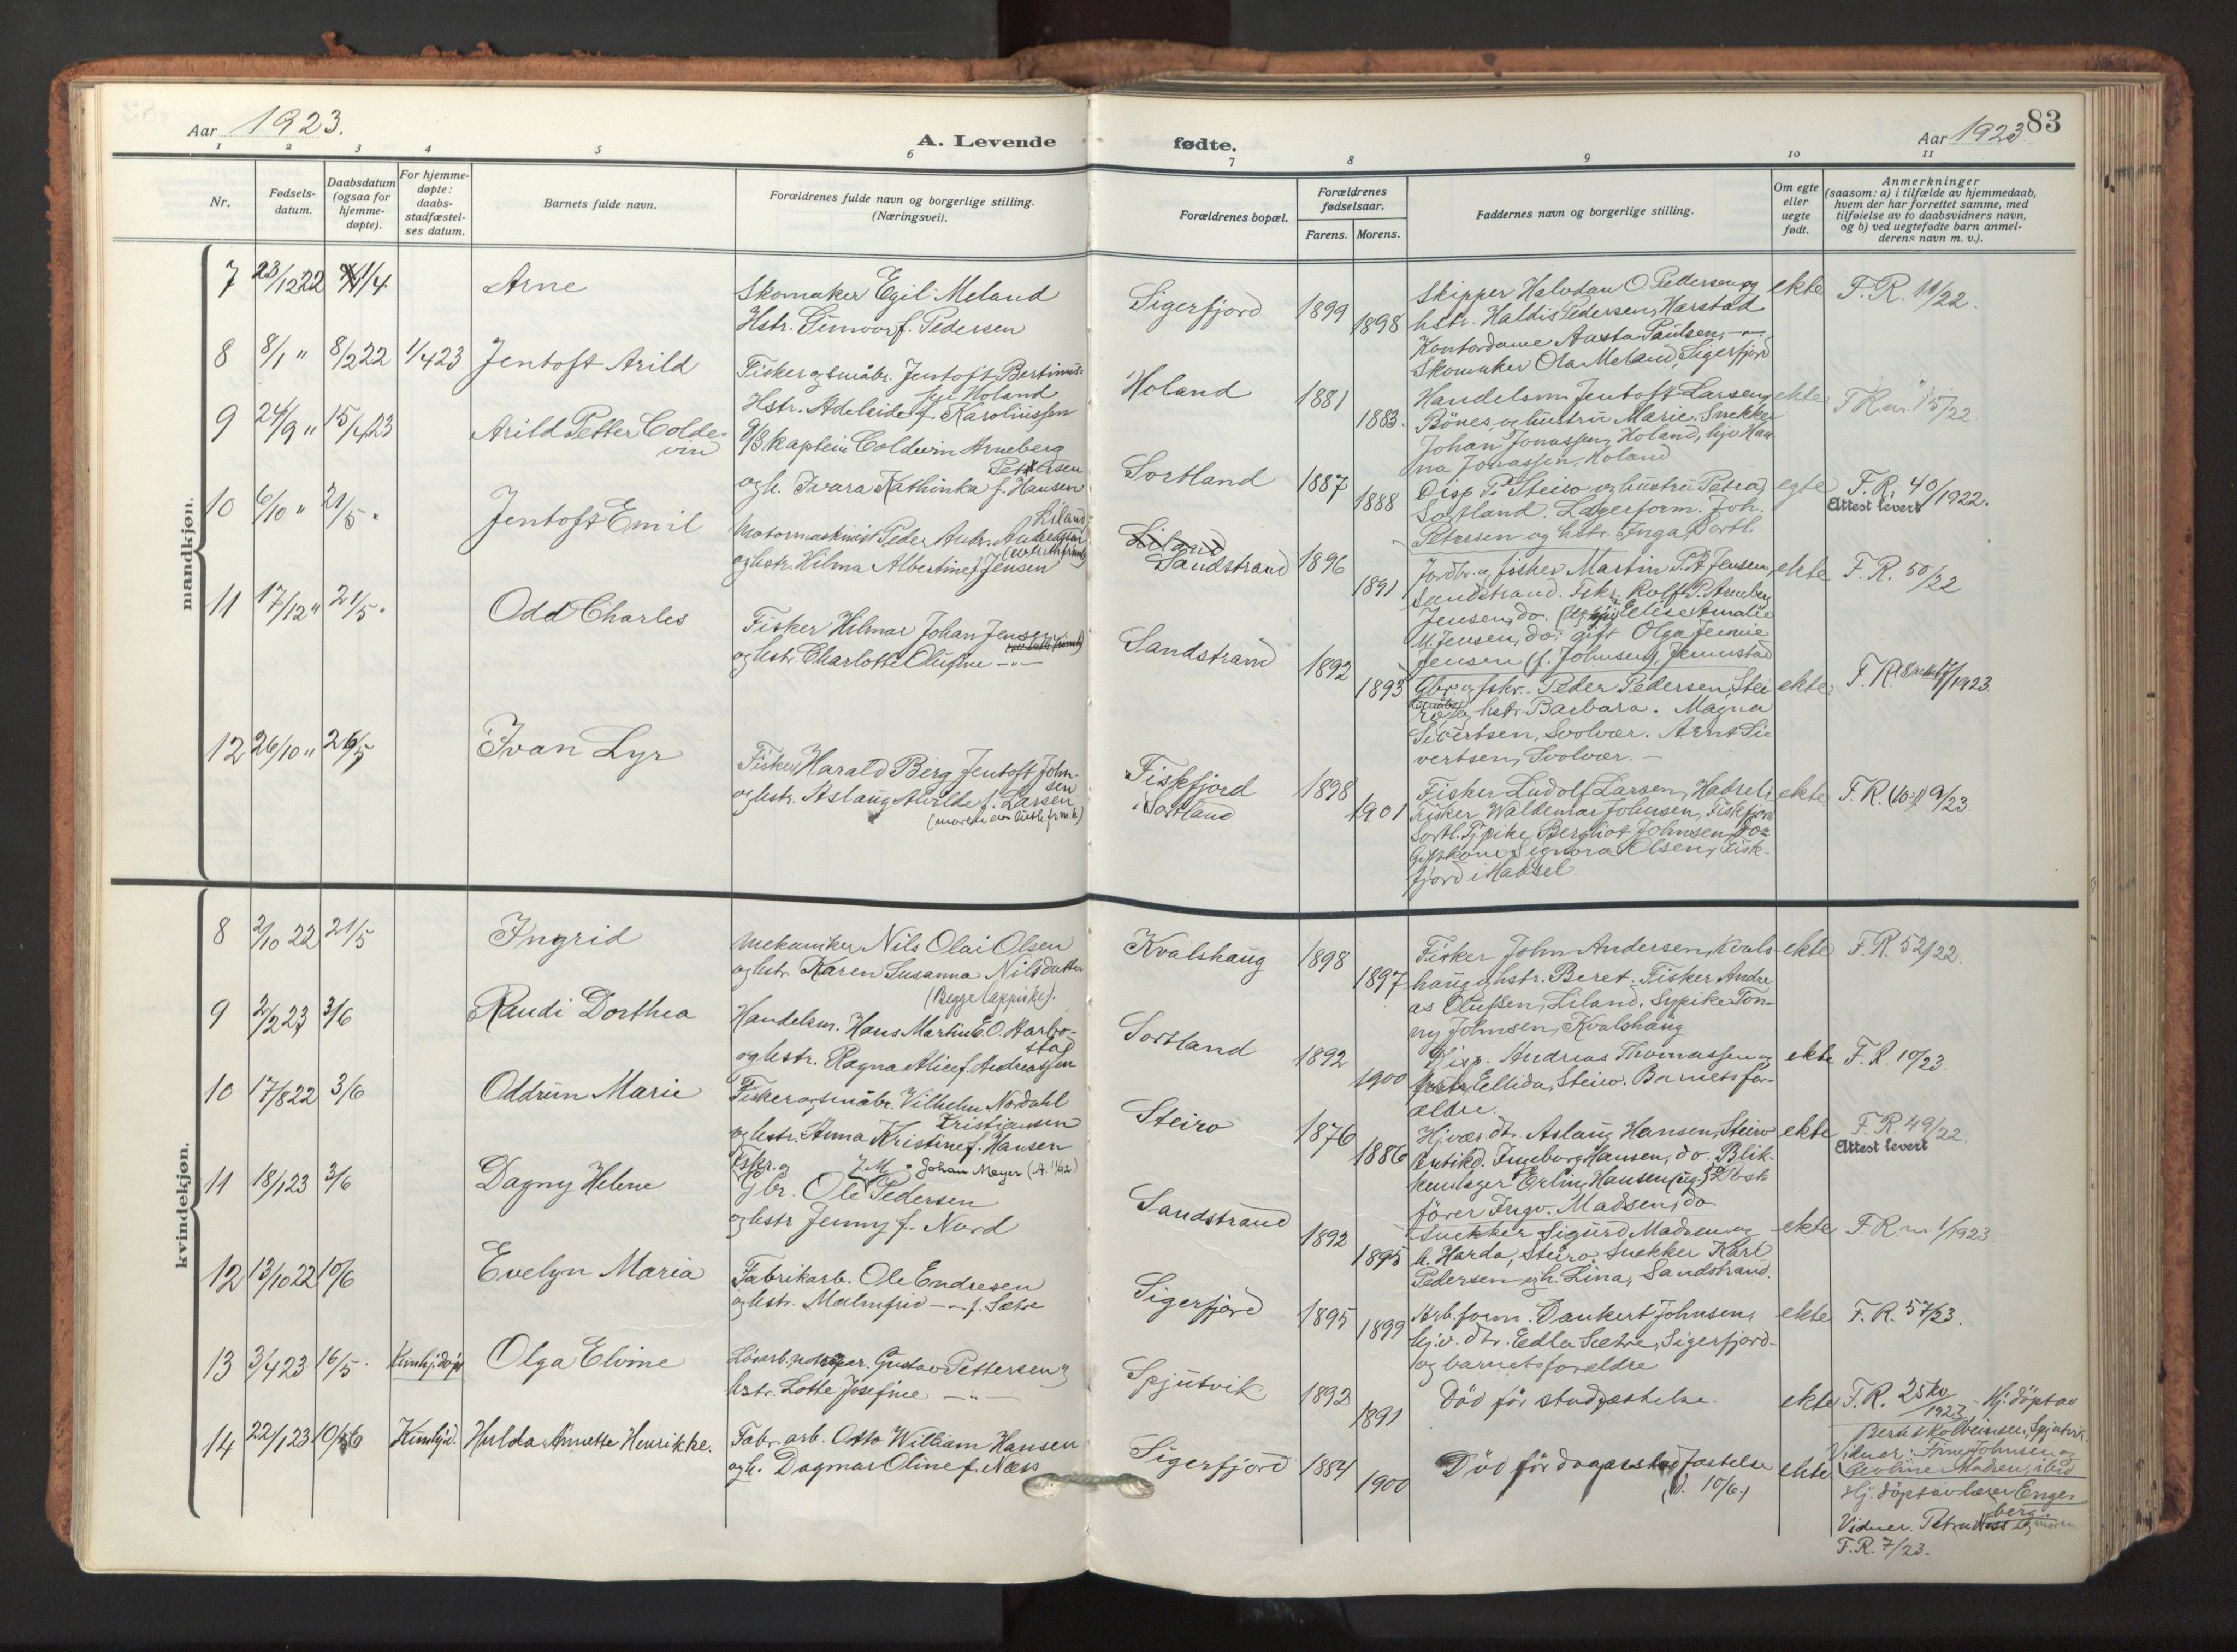 Aar 1923.
A. Levende
fødte.
Aar 1923.
83
1 2 3 4 5 6 7 8 9 10 11
Nr.
Fødsels-
datum.
Daabsdatum
(ogsaa for
hjemme-
døpte).
For hjemme-
døpte:
daabs-
stadfæstel-
ses datum.
Barnets fulde navn.
Forældrenes fulde navn og borgerlige stilling.
(Næringsvei).
Forældrenes bopæl.
Forældrenes
fødselsaar.
Farens. Morens.
Faddernes navn og borgerlige stilling.
Om egte
eller
uegte
født.
Anmerkninger
(saasom: a) i tilfælde av hjemmedaab,
hvem der har forrettet samme, med
tilføielse av to daabsvidners navn,
og b) ved uegtefødte barn anmel-
derens navn m. v.).
mandkjøn.
7 23/12 22 1/4 Arne
Skomaker Egil Meland
Hstr. Gunvor f. Pedersen
Sigerfjord 1899 1898
Skipper Halvdan O. Pedersen og
hstr. Haldis Pedersen, Harstad
Kontordame Aasta Paulsen, —"—
Skomaker Ola Meland, Sigerfjord
ekte F. R. /22.
8 8/1 " 8/2 22 1/4 23 Jentoft Arild
Fisker og småbr. Jentoft Bertinus-
Holand
Hstr. Adelaide f. Karoliussen
Holand 1881 1883.
Handelsm. Jentoft Larsen,
Bönes, og hustru Marie. Snekker
Johan Jonassen, Holand, hjv Han
na Jonassen, Holand
ekte F R nr. 15/22.
9 24/9 " 15/4 23 Arild Petter Colde-
vin
D/S kaptein Coldevin Arneberg
Pettersen
og h. Ivara Kathinka f. Hansen
Sortland 1887 1888
Disp. P. Steiro og hustru Petra,
Sortland. Lagerform. Joh.
Petersen og hstr. Inga, Sortl.
egte F. R. 40/1922.
Attest levert
10 6/10 " 21/5 " Jentoft Emil
Liland
Motormaskinist Peder Andr. Andreassen
og hstr. Hilma Albertine f. Jensen
Liland
Sandstrand 1896 1891
Jordbr. og fisker Martin P. A. Jensen,
Sandstrand. Fskr. Rolf P. Arneberg
Jensen, do. Elise Amalie
M. Jensen, do; gift Olga Jennie
Jensen (f. Johnsen), Jennestad
ekte F. R. 50/22
11 17/12 " 21/5 " Odd Charles
Fisker Hilmar Johan Jensen
og hstr. Charlotte Olufine —"—
Sandstrand 1892 1893
Gbr. og fskr. Peder Pedersen, Stei
ro og hstr. Barbara. Magna
Sivertsen, Svolvær. Arnt Si-
vertsen, Svolvær. —
ekte F. R. /1923.
12 26/10 " 26/5 Ivan Lyr
Fisker Harald Berg Jentoft John-
sen
og hstr. Aslaug Alvilde f. Larsen
Fiskfjord
i Sortland 1898 1901
Fisker Ludolf Larsen, Hadsel,
Fisker Waldemar Johnsen, Fiskfjord
Sortl. Tj.pike Bergliot Johnsen, do
Gift kone Signora Olsen, Fisk-
fjord i Hadsel.
ekte F. R. 9/23.
kvindekjøn.
8 2/10 22 21/5 Ingrid
Mekaniker Nils Olai Olsen
og hstr. Karen Susanna Nilsdatter
(Begge lappiske).
Kvalshaug 1898 1897
Fisker John Andersen, Kvals-
haug og hstr. Beret. Fisker Andre-
as Olufsen, Liland. Sypike Ton-
ny Johnsen, Kvalshaug
ekte F. R. 52/22.
9 2/2 23 3/6 Randi Dorthea
Handelsm. Hans Martin E. O. Harbo-
stad
og hstr. Ragna Alice f. Andreassen
Sortland 1892 1900
Disp. Andreas Thomassen og
hstr. Ellida, Steiro. Barnets for-
ældre.
ekte F. R. 10/23.
10 17/8 22 3/6 Oddrun Marie
Fisker og småbr. Vilhelm Nordahl
Kristiansen
og hstr. Anna Kristine f. Hansen
Steiro 1876 1886
Hjvær. dt. Aslaug Hansen, Steiro
butikd. Ingeborg Hansen, do. Blik-
kenslager Erling Hansen (ug.) Post-
fører Ingv. Madsen, do.
ekte F. R. 49/22.
Attest levert
11 18/1 23 3/6 Dagny Helene
Fskr. og Johan Meyer
Gbr. Ole Pedersen
og hstr Jenny f. Nord
Sandstrand 1892 1895
Snekker Sigurd Madsen og
h. Harda, Steiro, Snekker Karl
Pedersen og h. Lina, Sandstrand.
ekte F. R. nr. 1/1923
12 13/10 22 10/6 Evelyn Maria
Fabrikarb. Ole Endresen
og hstr. Malmfrid —"— f. Sætre
Sigerfjord 1895 1899
Arb.form. Dankert Johnsen,
hjv. dtr. Edla Sætre, Sigerfjord
og barnets forældre
ekte F. R. 57/23.
13 3/4 23 16/5. Kun hj.døpt Olga Elvine
Løsarb. Gustav Pettersen og
hstr. Lotte Josefine —"—
Spjutvik 1892 1891
Död för stadfæstelse.
ekte F. R. 25/1923 Hj. döpt av
Berit Kolbeinsen, Spjutvik.
Vidner: Johnsen og
Madsen, ibid
14 22/1 23 10/6 Kun hjd. Hulda Annette Henrikke.
Fabr.arb. Otto William Hansen
og h. Dagmar Oline f. Næss
Sigerfjord 1884 1900
Död för daabsstadfæstelse
(d. 10/6)
ekte Hj. döpt av lærer Enge-
berg.
Vidner. Petra Næss og moren
F. R. 7/23.